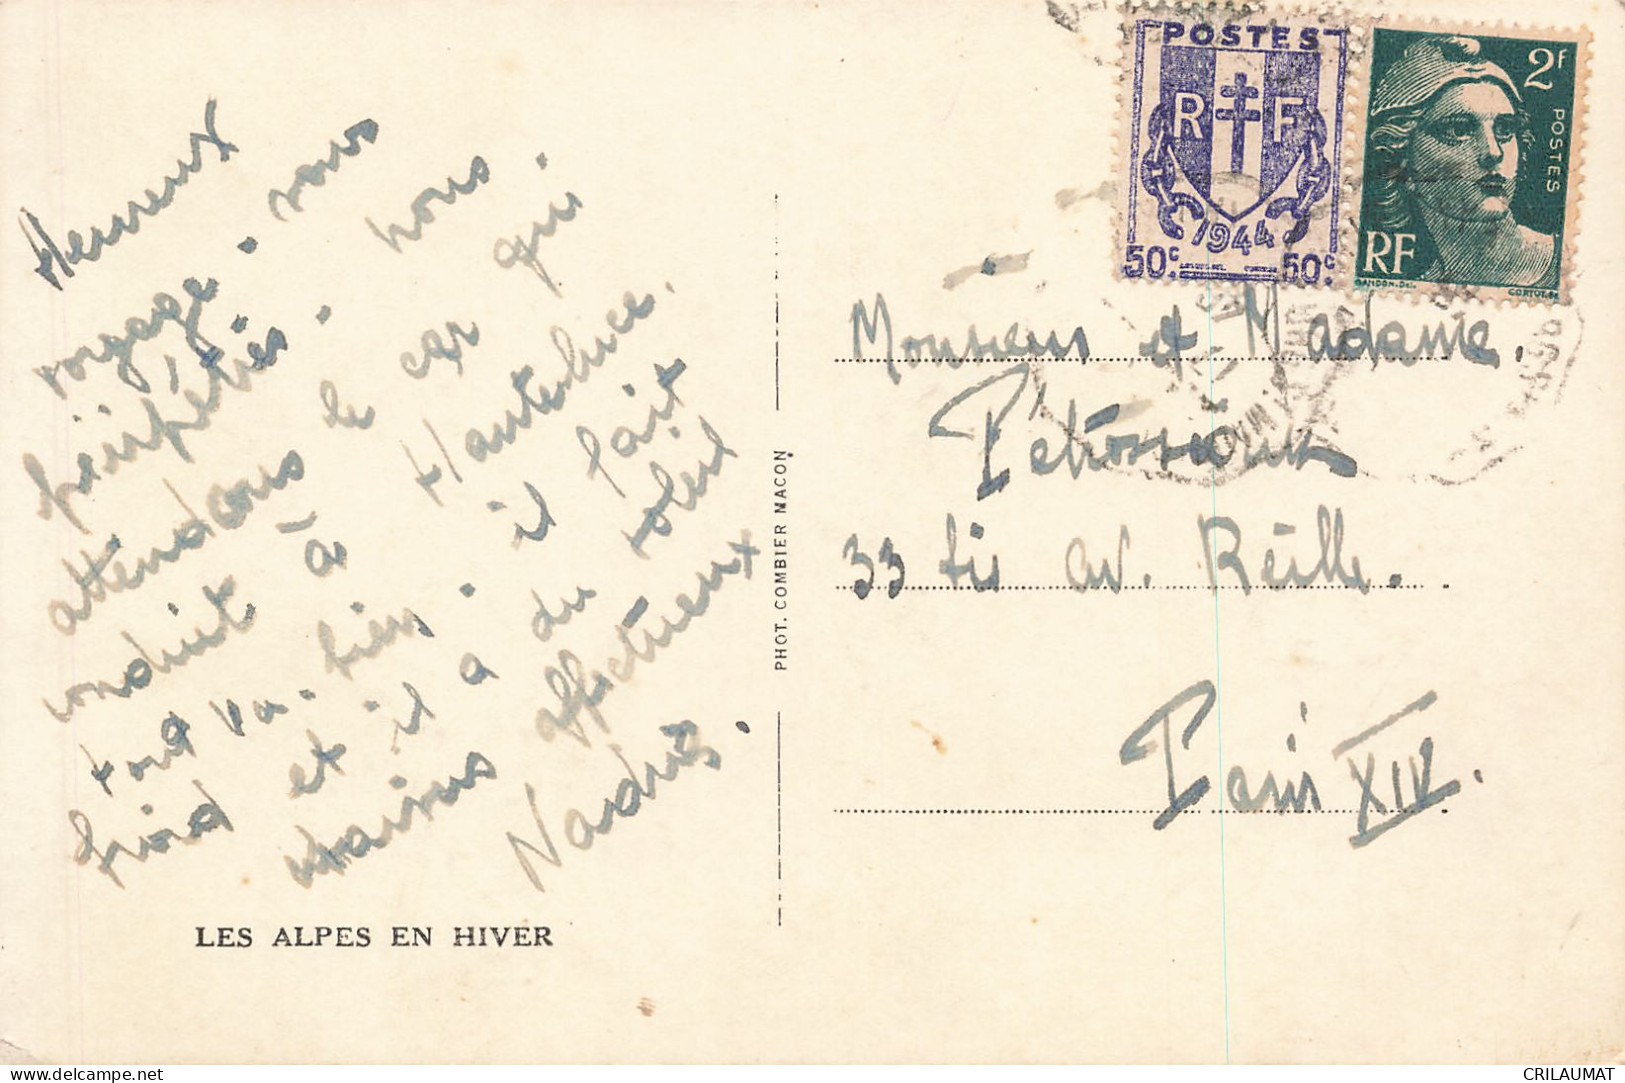 Heureux
voyage. sans
péripéties. nous
attendons le car qui
conduit à Hauteluce.
tout va bien. il fait
froid et il a du soleil
affectueux
LES ALPES EN HIVER
PHOT. COMBIER MACON
POSTES
R F
1944
50c 50c
2F
POSTES
RF
GANDON. Del.
CORTOT. Sc
Monsieur et Madame.
33 bis av. Reille.
Paris XIV.
CRILAUMAT